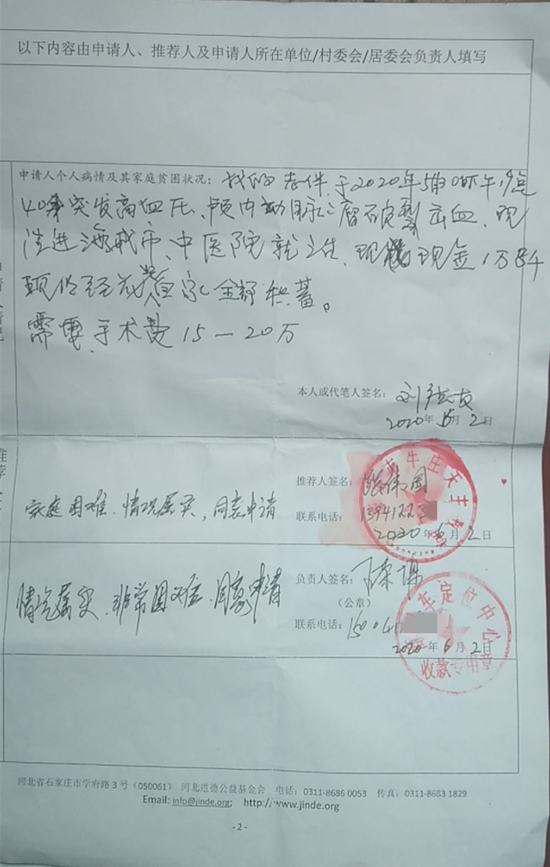 以下内容由申请人、推荐人及申请人所在单位/村委会/居委会负责人填写
申请人个人病情及其家庭贫困状况：我的老伴，于2020年5月 下午19点
40突发高血压、颅内动脉瘤破裂出血、现
送进海城市、中医院就医、现 现金1万84
现已经花费家全部积蓄。
需要手术费15—20万
本人或代笔人签名：
2020年6月2日
家庭困难、情况属实、同意申请
推荐人签名：
联系电话：1394122
2020年6月2日
牛庄天主
情况属实、非常困难、同意申请
负责人签名：
（公章）
联系电话：15004
2020年6月2日
车定位中心
收款专用章
河北省石家庄市学府路3号（050061） 河北进德公益基金会 电话：0311-8686 0053 传真：0311-8683 1829
Email: info@jinde.org; http://www.jinde.org
- 2 -